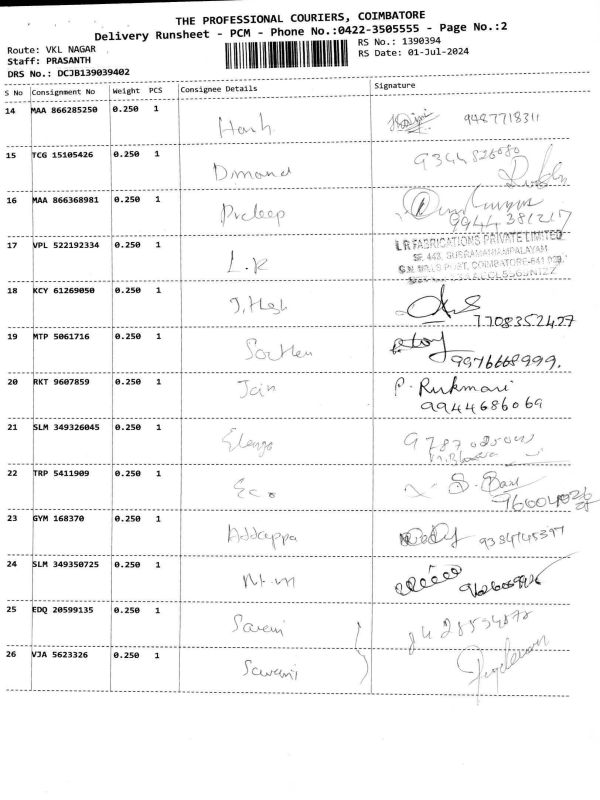 THE PROFESSIONAL COURIERS, COIMBATORE
Delivery Runsheet - PCM - Phone No.:0422-3505555 - Page No.:2
Route: VKL NAGAR
RS No.: 1390394
Staff: PRASANTH
RS Date: 01-Jul-2024
DRS No.: DCJB139039402
S No Consignment No Weight PCS Consignee Details Signature
14 MAA 866285250 0.250 1 9487718311
15 TCG 15105426 0.250 1 Dmand 9344826080
16 MAA 866368981 0.250 1 Prdeep
9944381217
17 VPL 522192334 0.250 1 L.R
L R FABRICATIONS PRIVATE LIMITED
SF. 443, SUBRAMANIAMPALAYAM
G.N. MILLS POST, COIMBATORE-641 029.
18 KCY 61269050 0.250 1
7708352427
19 MTP 5061716 0.250 1
9976668999.
20 RKT 9607859 0.250 1 Jain P. Rukmari
9944686069
21 SLM 349326045 0.250 1 Elango
22 TRP 5411909 0.250 1 Eco
23 GYM 168370 0.250 1 9384745397
24 SLM 349350725 0.250 1
25 EDQ 20599135 0.250 1
26 VJA 5623326 0.250 1